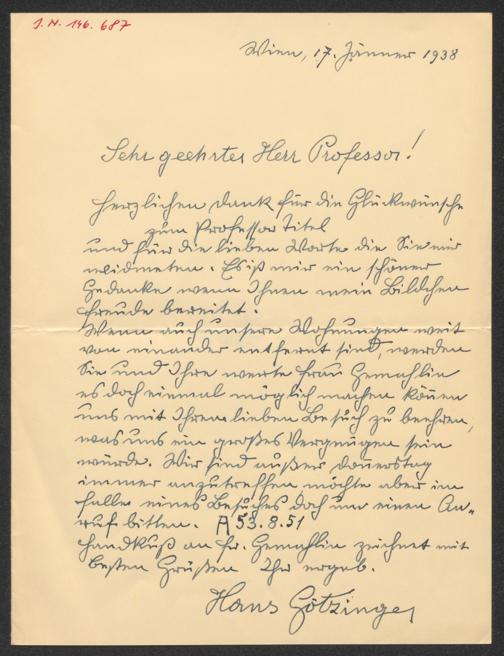 J. N. 146.687
Wien, 17. Jänner 1938
Sehr geehrter Herr Professor!
Herzlichen Dank für die Glückwünsche
zum Professor Titel
und für die lieben Worte die Sie mir
widmeten. Es ist mir ein schöner
Gedanke wenn Ihnen mein Bildchen
Freude bereitet.
Wenn auch unsere Wohnungen weit
von einander entfernt sind, werden
Sie und Ihre werte Frau Gemahlin
es doch einmal möglich machen können
uns mit Ihrem lieben Besuch zu beehren,
was uns ein großes Vergnügen sein
würde. Wir sind außer Donnerstag
immer anzutreffen möchte aber im
Falle eines Besuches doch um einen An„
ruf bitten. A 53.8.51
Handkuß an Fr. Gemahlin zeichnet mit
besten Grüßen Ihr ergeb.
Hans Götzinger